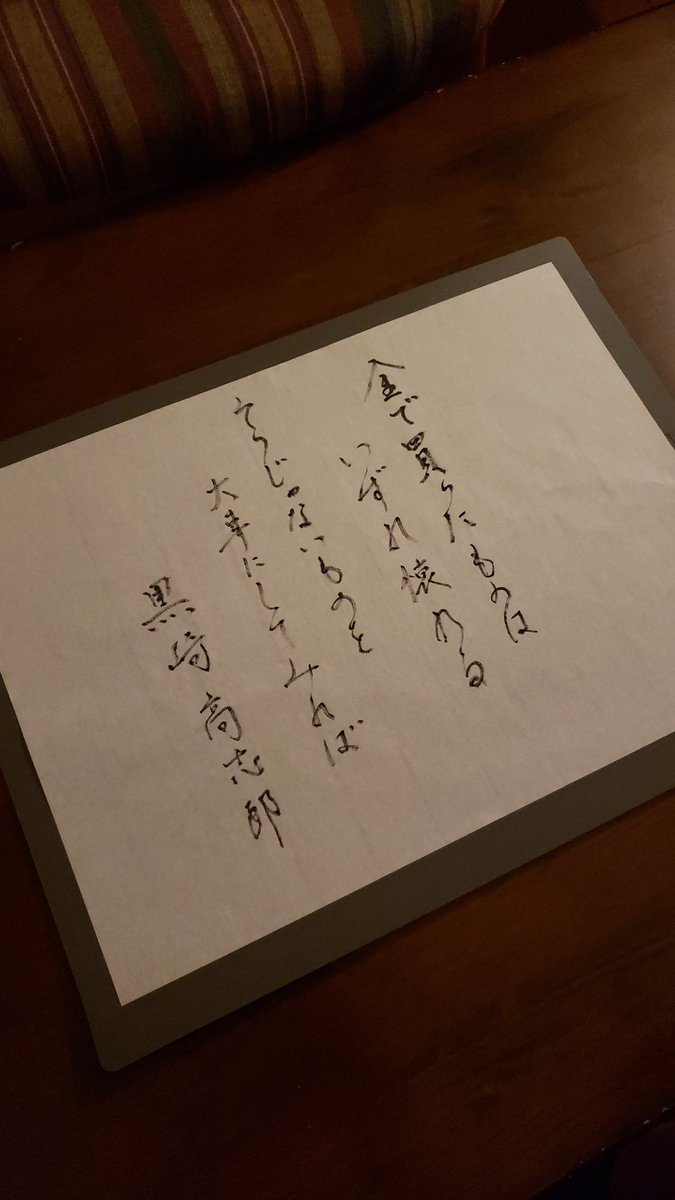 金で買ったものは
いずれ懐れる
そうじゃないものを
大事にしてみれば
黒崎高志郎